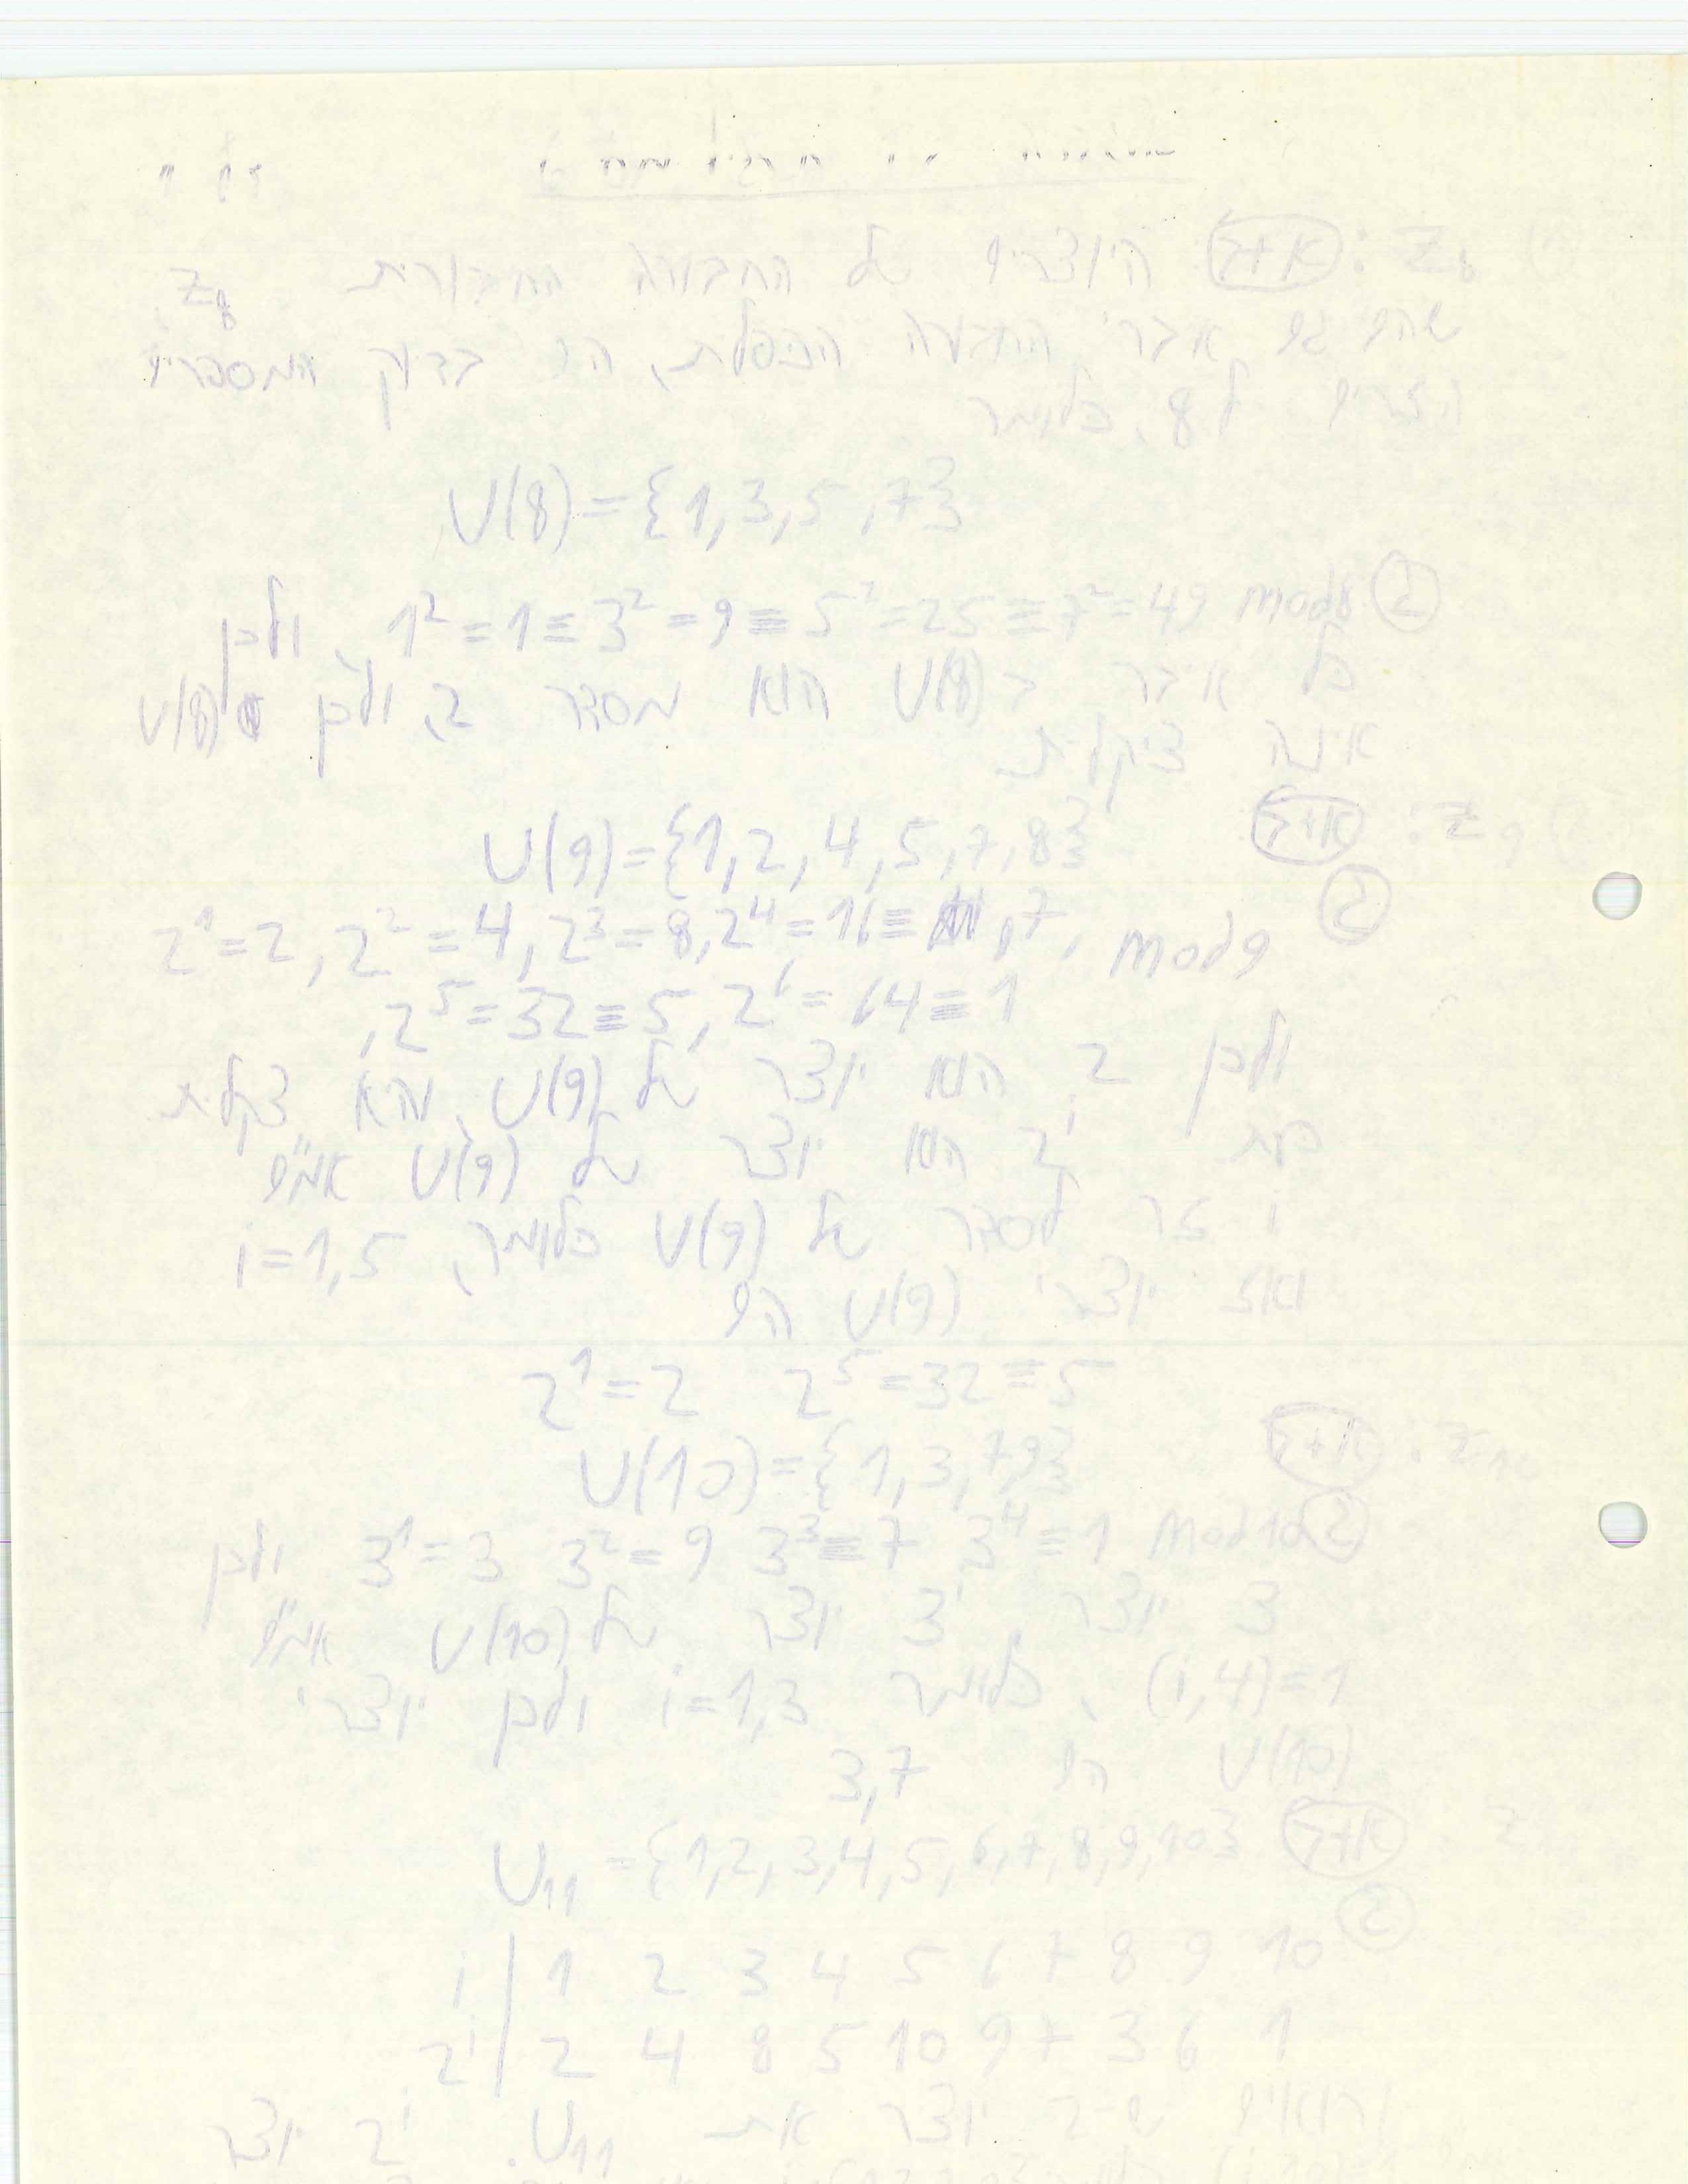 Z₈: א+ב היוצרים של החבורה החיבורית Z₈
שהם גם אברי החבורה הכפלית, הם בדיוק המספרים
הזרים ל 8, כלומר
U(8)={1,3,5,7}
ג 1²=1≡3²=9≡5²=25≡7²=49 mod8, ולכן
כל איבר ב U(8) הוא מסדר 2, ולכן U(8)
אינה ציקלית
Z₉: א+ב U(9)={1,2,4,5,7,8}
ג 2¹=2, 2²=4, 2³=8, 2⁴=16≡7, mod9
, 2⁵=32≡5, 2⁶=64≡1
ולכן 2 הוא יוצר של U(9), והיא צקלית
כעת 2ⁱ הוא יוצר של U(9) אמ"ם
i זר לסדר של U(9) כלומר, i=1,5
ואז יוצרי U(9) הם
2¹=2 2⁵=32≡5
Z₁₀: א+ב U(10)={1,3,7,9}
ג 3¹=3 3²=9 3³≡7 3⁴≡1 mod10 ולכן
3 יוצר, 3ⁱ יוצר של U(10) אמ"ם
(i,4)=1, כלומר i=1,3 ולכן יוצרי
U(10) הם 3,7
Z א+ב U₁₁={1,2,3,4,5,6,7,8,9,10}
ג
i | 1 2 3 4 5 6 7 8 9 10
2ⁱ | 2 4 8 5 10 9 7 3 6 1
ורואים ש-2 יוצר את U₁₁. 2ⁱ יוצר